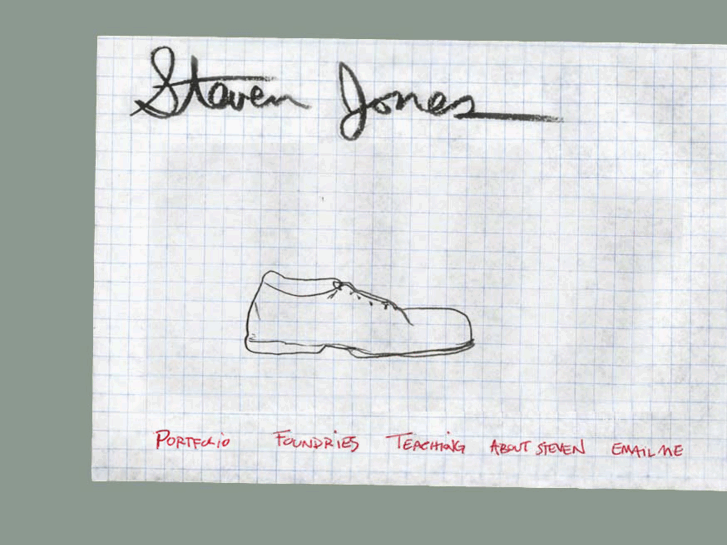 Steven Jones
PORTFOLIO FOUNDRIES TEACHING ABOUT STEVEN EMAIL ME